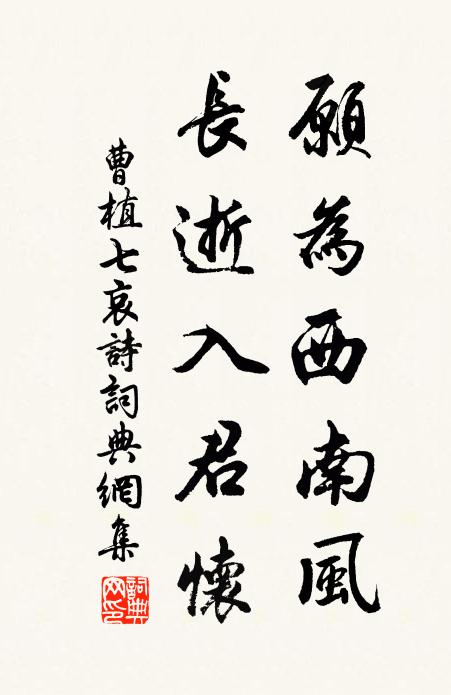 願為西南風
長逝入君懷
曹植七哀詩詞典網集
詞典
网印